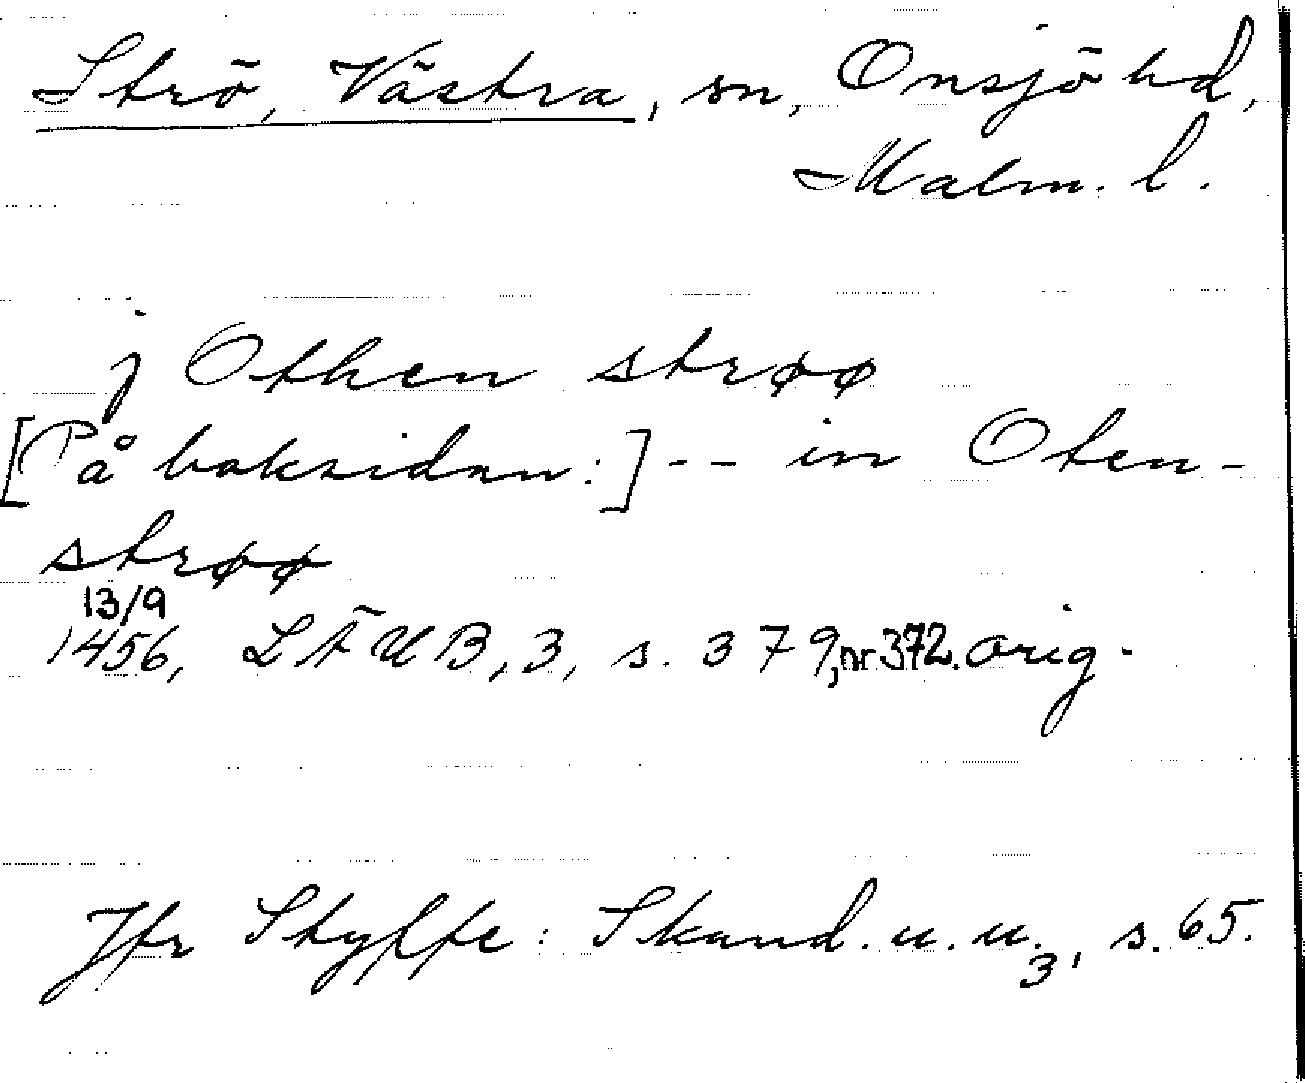 Strö, Västra, sn, Onsjö hd,
Malm. l.
j Othen strøø
[På baksidan:] -- in Oten-
strøø
13/9
1456, LÄUB, 3, s. 379, nr 372. orig.
Jfr Styffe: Skand. u. u. 3, s. 65.